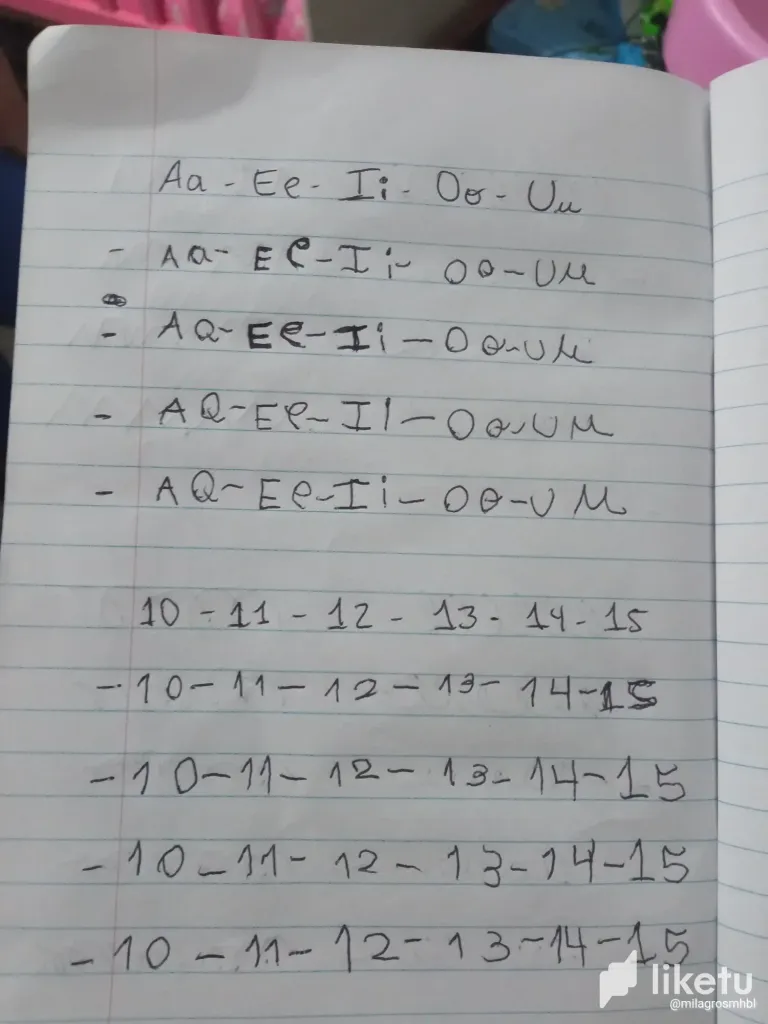 Aa - Ee - Ii - Oo - Uu
- Aa - Ee - Ii - Oo - Uu
- Aa - Ee - Ii - Oo - Uu
- Aa - Ee - Ii - Oo - Uu
- Aa - Ee - Ii - Oo - Uu
10 - 11 - 12 - 13 - 14 - 15
- 10 - 11 - 12 - 13 - 14 - 15
- 10 - 11 - 12 - 13 - 14 - 15
- 10 - 11 - 12 - 13 - 14 - 15
- 10 - 11 - 12 - 13 - 14 - 15
liketu
@milagrosmhbl